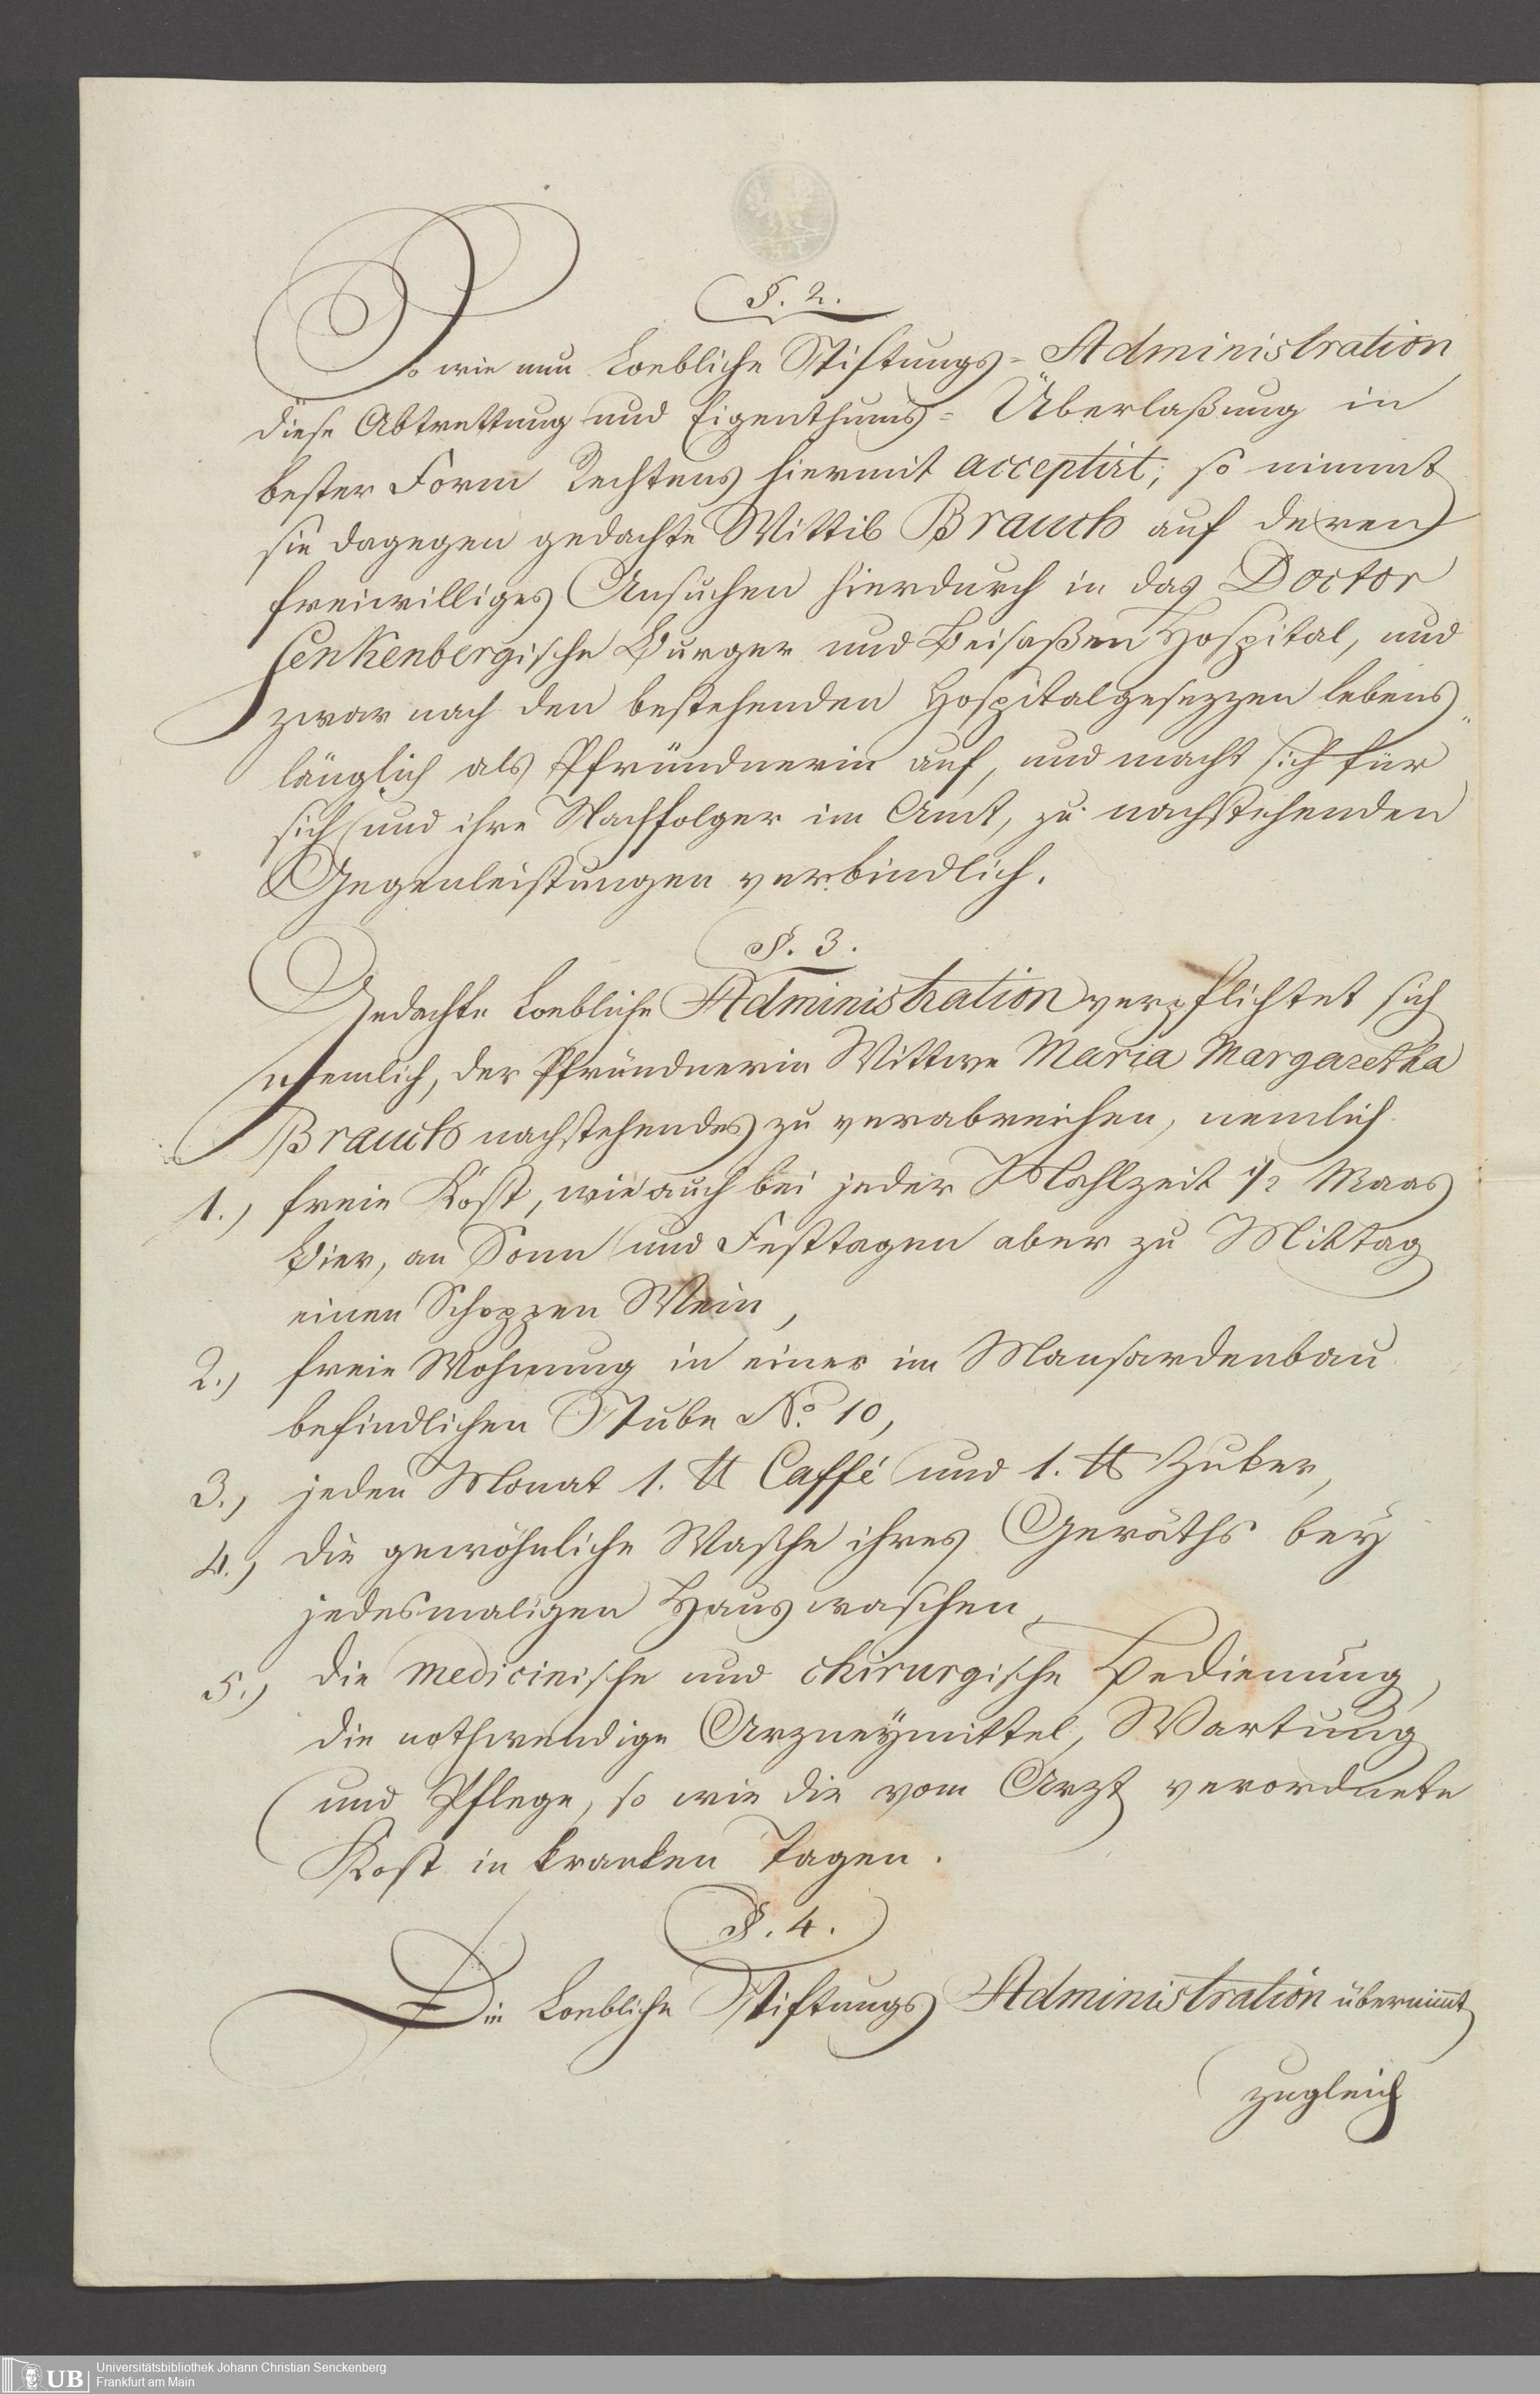 §. 2.
So wie nun Loebliche Stiftungs=Administration
diese Abtrettung und Eigenthums=Überlaßung in
bester Form Rechtens hiermit acceptirt; so nimmt
sie dagegen gedachte Wittib Brauch auf deren
freiwilliges Ansuchen hierdurch in das Doctor
Senkenbergische Bürger und Beisaßen Hospital, und
zwar nach den bestehenden Hospitalgesezzen lebens„
länglich als Pfründnerin auf, und macht sich für
sich und ihre Nachfolger im Amt, zu nachstehenden
Gegenleistungen verbindlich.
§. 3.
Gedachte Loebliche Administration verpflichtet sich
nemlich, der Pfründnerin Wittwe Maria Margaretha
Brauch nachstehendes zu verabreichen, nemlich
1.) freie Kost, wie auch bei jeder Mahlzeit 1/2 Maas
Bier, an Sonn und Festtagen aber zu Mittag
einen Schoppen Wein,
2.) freie Wohnung in einer im Mansardenbau
befindlichen Stube No. 10,
3.) jeden Monat 1. ℔ Caffé und 1. ℔ Zuker,
4.) die gewöhnliche Wasche ihres Geräths bey
jedesmaligen Hauswaschen,
5.) die medicinische und chirurgische Bedienung,
die nothwendige Arzneymittel, Wartung
und Pflege, so wie die vom Arzt verordnete
Kost in kranken Tagen.
§. 4.
Die Loebliche Stiftungs Administration übernimmt
zugleich
UB
Universitätsbibliothek Johann Christian Senckenberg
Frankfurt am Main